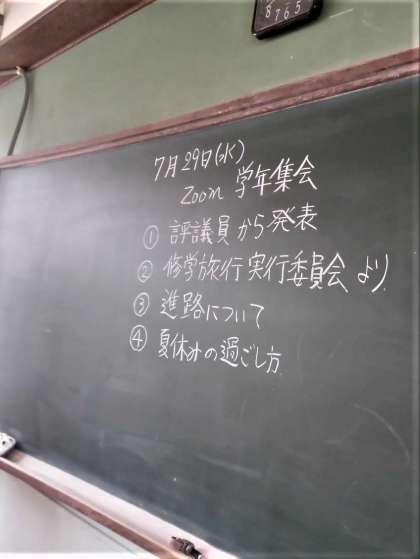 8765
7月29日(水)
Zoom 学年集会
① 評議員から発表
② 修学旅行実行委員会より
③ 進路について
④ 夏休みの過ごし方